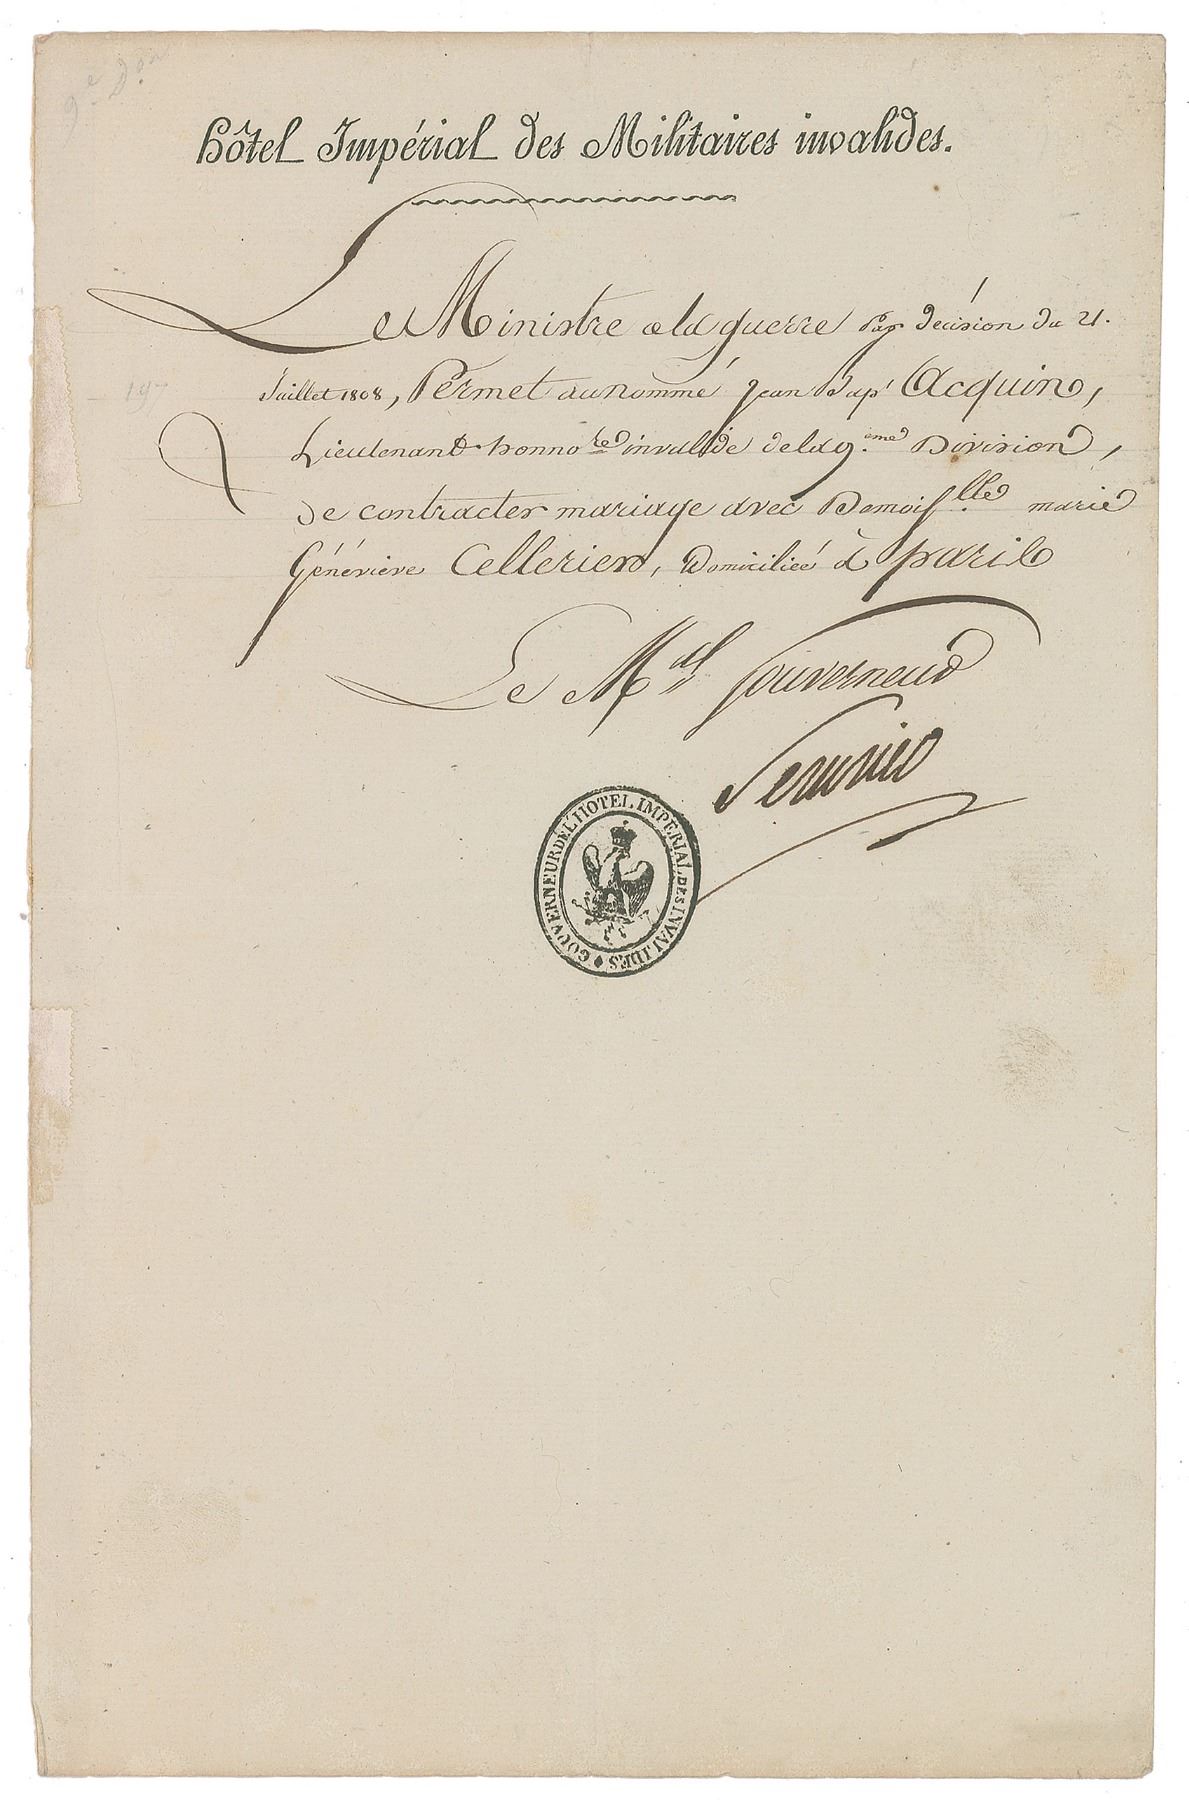 9e Don
hôtel Impérial des Militaires invalides.
Le Ministre de la guerre Par décision du 21.
197
Juillet 1808, Permet au nommé Jean Bapt Acquin,
Lieutenant honnore invalide de la 9.eme Division,
de contracter mariage avec Demoislle marie
Généviève Cellerier, Domiciliée à paris
Le Mal Gouverneur
Serurier
GOUVERNEUR DE L'HOTEL IMPERIAL DES INVALIDES